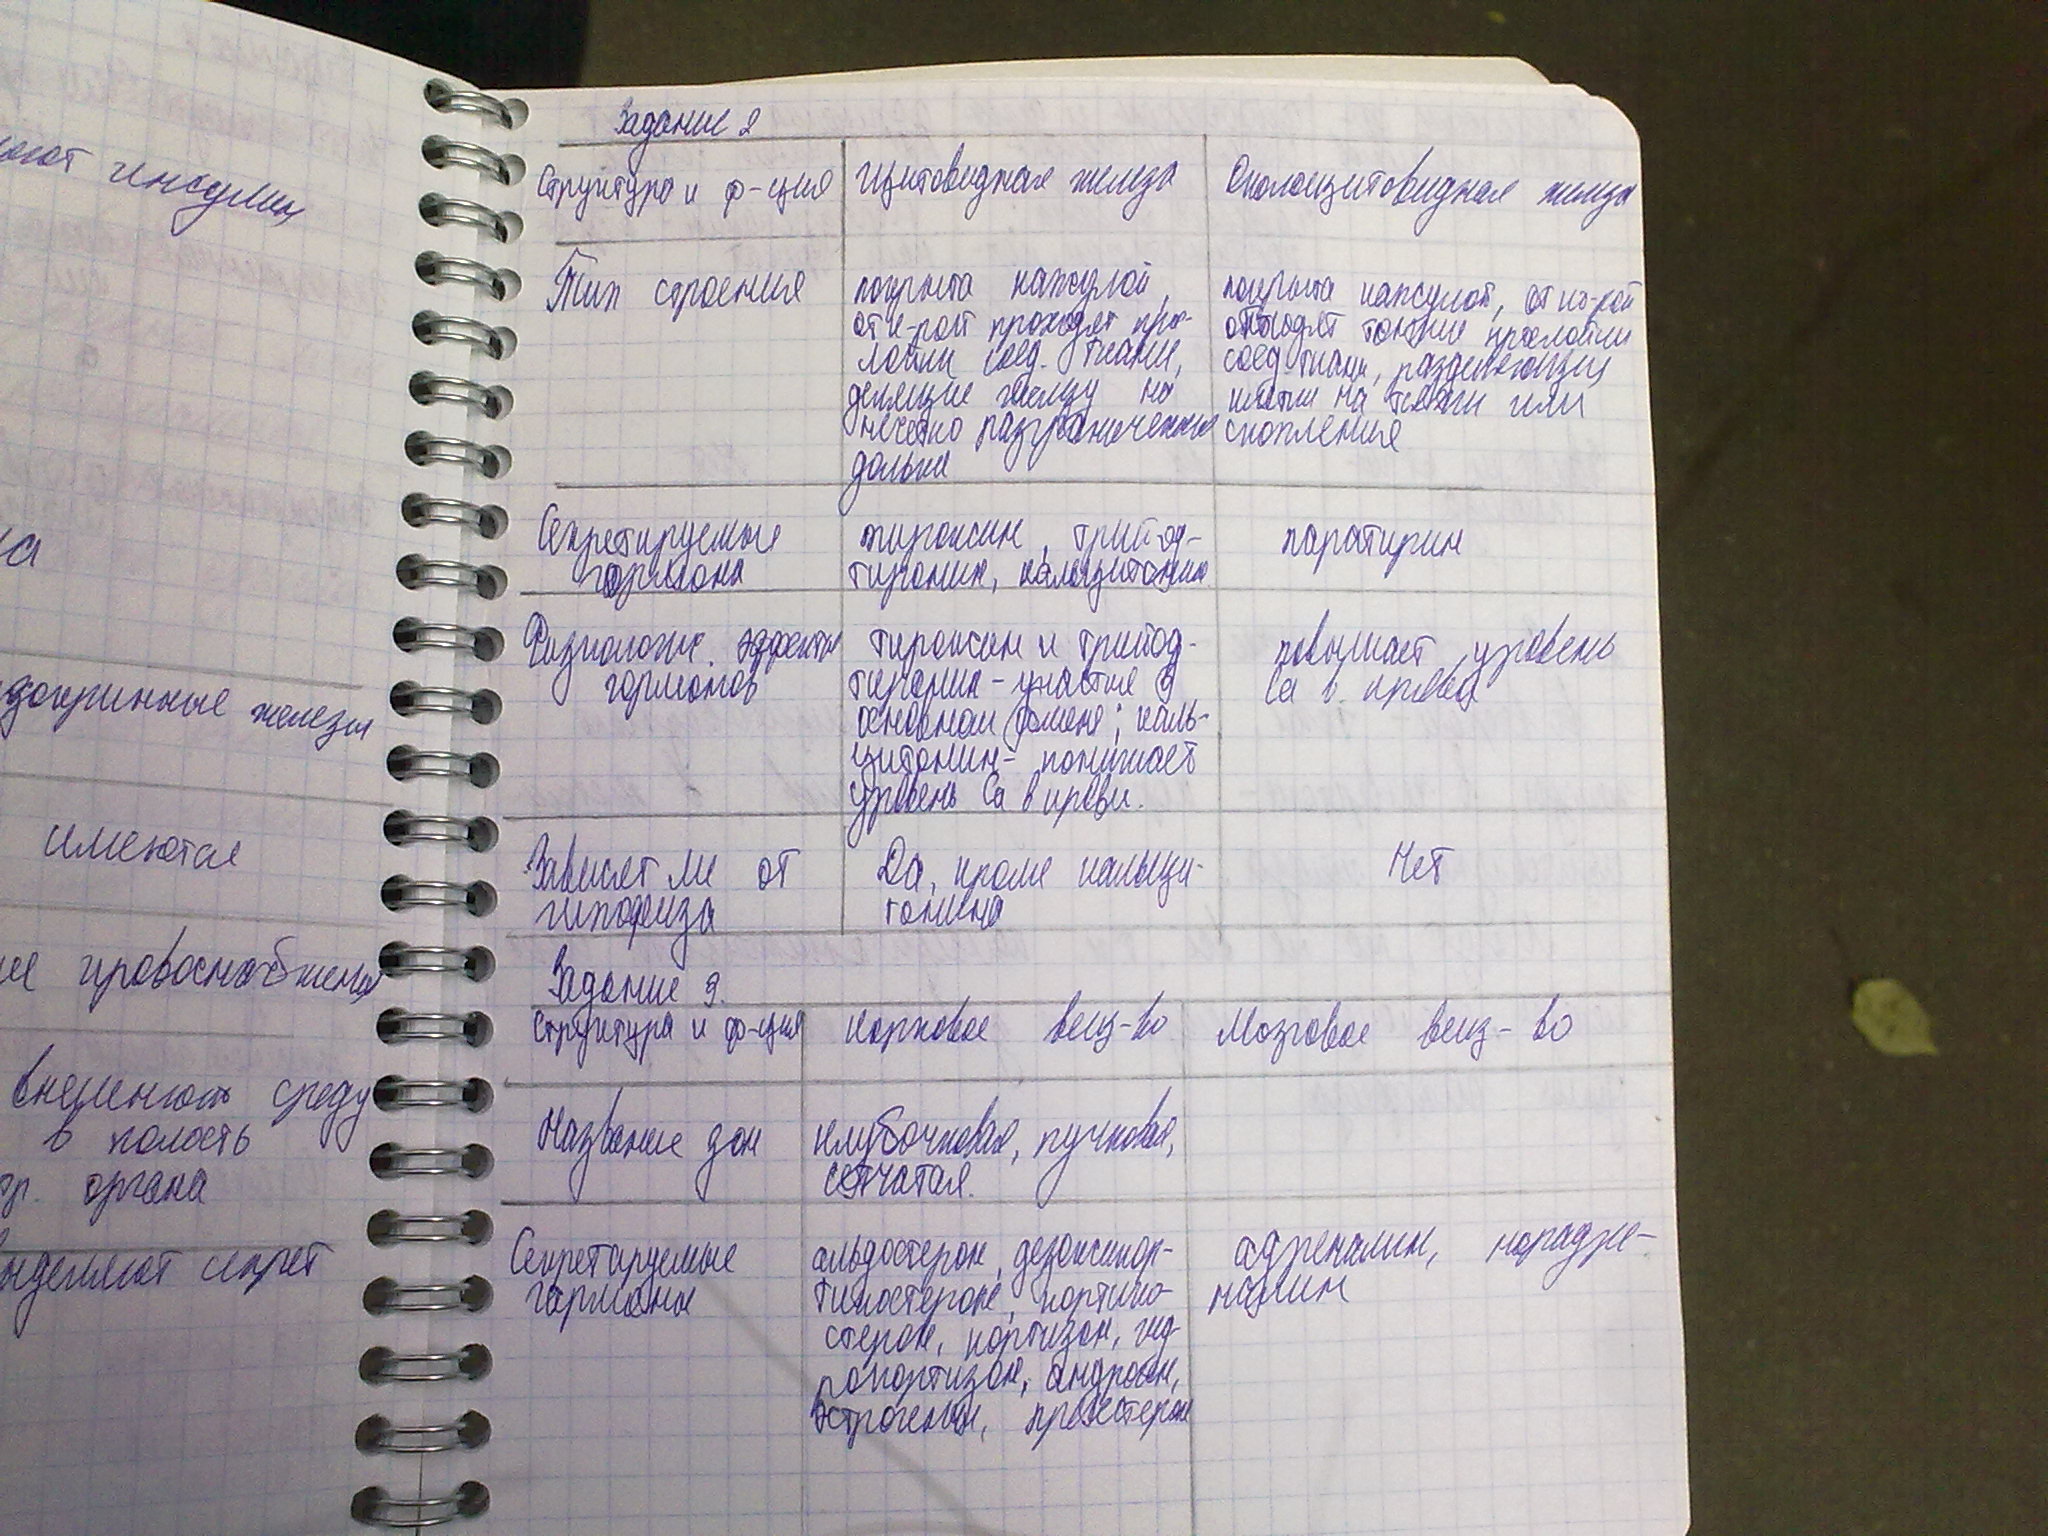 гают инсулин
ка
докринные железы
имеются
ие кровоснабжения
внешнюю среду
в полость
др. органа
выделяют секрет
Задание 2
Структура и ф-ция
Щитовидная железа
Околощитовидная железа
Тип строения
покрыта капсулой,
от к-рой проходят про-
слойки соед. ткани,
делящие железу на
нечетко разграниченные
дольки
покрыта капсулой, от к-рой
отходят тонкие прослойки
соед ткани, разделяющие
клетки на тяжи или
скопления
Секретируемые
гормоны
тироксин, трийод-
тиронин, кальцитонин
паратирин
Физиологич. эффекты
гормонов
тироксин и трийод-
тиронин - участие в
основном обмене; каль-
цитонин - понижает
уровень Ca в крови.
повышает уровень
Ca в крови
Зависят ли от
гипофиза
Да, кроме кальци-
тонина
Нет
Задание 3.
Структура и ф-ция
Корковое вещ-во
Мозговое вещ-во
Название зон
клубочковая, пучковая,
сетчатая.
Секретируемые
гормоны
альдостерон, дезоксикор-
тикостерон, кортико-
стерон, кортизон, гид-
рокортизон, андроген,
эстрогены, прогестерон
адреналин, норадре-
налин